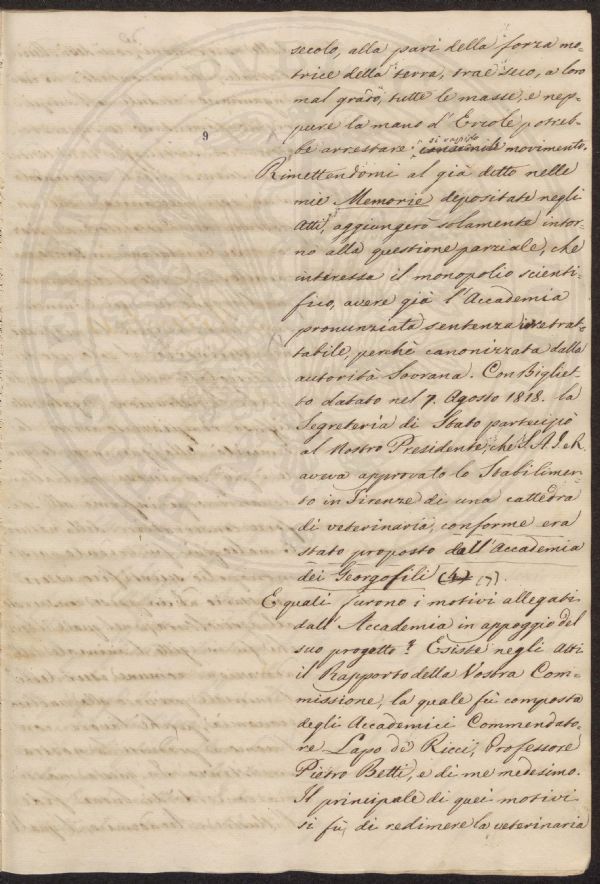 secolo, alla pari della forza mo-
trice della terra, trae seco, a loro
mal grado, tutte le masse, e nep-
9
pure la mano d'Ercole potreb-
sì rapido
be arrestare consimile movimento.
Rimettendomi al già detto nelle
mie Memorie depositate negli
Atti, aggiungerò solamente intor-
no alla questione parziale, che
interessa il monopolio scienti-
fico, avere già l'Accademia
pronunziata sentenza irretrat-
tabile, perchè canonizzata dalla
autorità Sovrana. Con Bigliet-
to datato nel 7. Agosto 1818. la
Segreteria di Stato partecipò
al Nostro Presidente, che S. A. I. e R.
aveva approvato lo Stabilimen-
to in Firenze di una cattedra
di veterinaria, conforme era
stato proposto dall'Accademia
dei Georgofili (7).
E quali furono i motivi allegati
dall'Accademia in appoggio del
suo progetto? Esiste negli Atti
il Rapporto della Vostra Com-
missione, la quale fù composta
degli Accademici Commendato-
re Lapo de' Ricci, Professore
Pietro Betti, e di me medesimo.
Il principale di quei motivi
si fù, di redimere la veterinaria